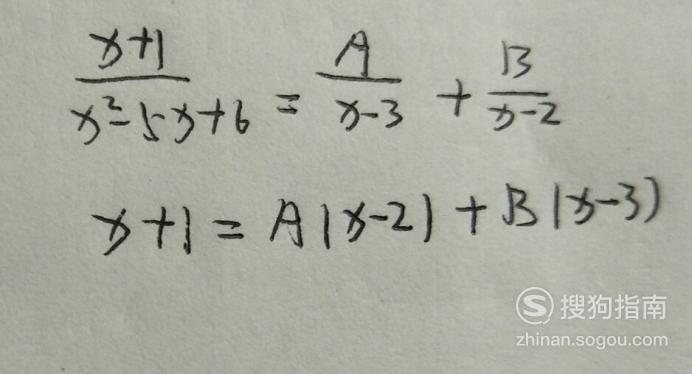 x+1/x²-5x+6 = A/x-3 + B/x-2
x+1=A(x-2)+B(x-3)
S 搜狗指南
zhinan.sogou.com